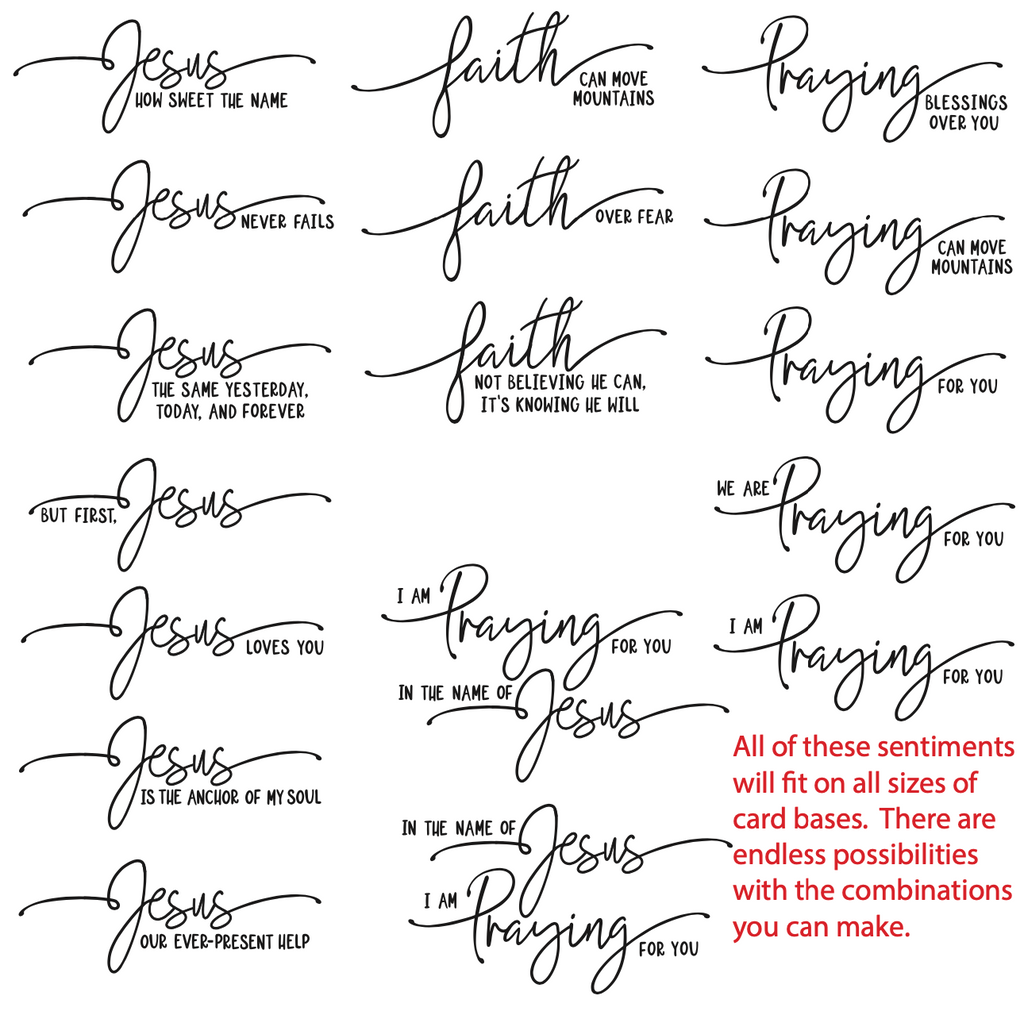 Jesus
HOW SWEET THE NAME
Jesus NEVER FAILS
Jesus
THE SAME YESTERDAY,
TODAY, AND FOREVER
BUT FIRST, Jesus
Jesus LOVES YOU
Jesus
IS THE ANCHOR OF MY SOUL
Jesus
OUR EVER-PRESENT HELP
faith CAN MOVE
MOUNTAINS
faith OVER FEAR
faith
NOT BELIEVING HE CAN,
IT'S KNOWING HE WILL
I AM Praying FOR YOU
IN THE NAME OF Jesus
IN THE NAME OF Jesus
I AM Praying FOR YOU
Praying BLESSINGS
OVER YOU
Praying CAN MOVE
MOUNTAINS
Praying FOR YOU
WE ARE Praying FOR YOU
I AM Praying FOR YOU
All of these sentiments
will fit on all sizes of
card bases.  There are
endless possibilities
with the combinations
you can make.